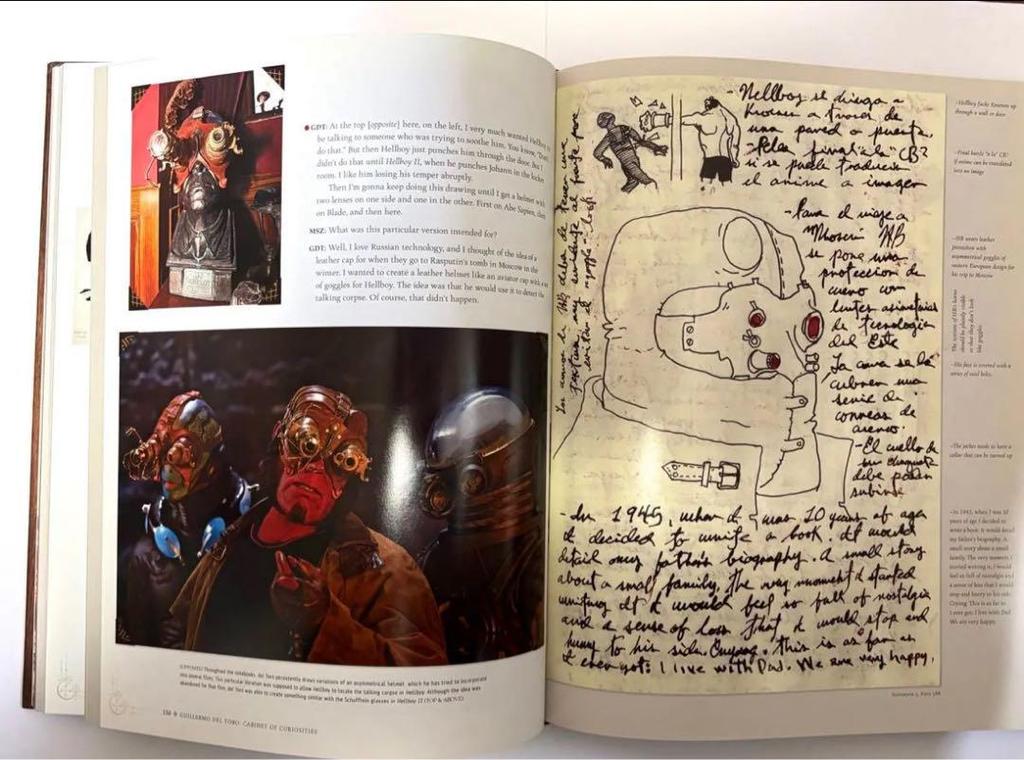 ●GDT: At the top [opposite] here, on the left, I very much wanted Hellboy to
be talking to someone who was trying to soothe him. "You know, "Don't
do that." But then Hellboy just punches him through the door. But I
didn't do that until Hellboy II, when he punches Johann in the locker
room. I like him losing his temper abruptly.
Then I'm gonna keep doing this drawing until I get a helmet with
two lenses on one side and one in the other. First on Abe Sapien, then
on Blade, and then here.
MSZ: What was this particular version intended for?
GDT: Well, I love Russian technology, and I thought of the idea of a
leather cap for when they go to Rasputin's tomb in Moscow in the
winter. I wanted to create a leather helmet like an aviator cap with a
of goggles for Hellboy. The idea was that he would use it to detect the
talking corpse. Of course, that didn't happen.
[OPPOSITE] Throughout the notebooks, del Toro persistently draws variations of an asymmetrical helmet, which he has tried to incorporate
into several films. This particular iteration was supposed to allow Hellboy to locate the talking corpse in Hellboy. Although the idea was
abandoned for that film, del Toro was able to create something similar with the Schufftein glasses in Hellboy II (TOP & ABOVE).
150 GUILLERMO DEL TORO: CABINET OF CURIOSITIES
-Hellboy se niega a
Kroenen a través de
una pared o puerta.
el anime a imagen
-Para el viaje a
Moscú HB
se pone una
protección de
cuero con
lentes asimétricas
de tecnología
del Este
La cara se la
cubren una
serie de
correas de
-El cuello de
su chaqueta
debe poder
subirse
-In 1945, when I was 10 years of age
I decided to write a book. It would
detail my father's biography. A small story
about a small family. The very moment I started
writing it I would feel so full of nostalgia
and a sense of loss that I would stop and
hurry to his side. Crying. This is as far as
I ever got: I live with Dad. We are very happy.
-Hellboy fucks Kroenen up
through a wall or door
-Final battle "a la" CB?
if anime can be translated
into an image
-HB wears leather
protection with
asymmetrical goggles of
eastern European design for
his trip to Moscow
-His face is covered with a
series of steel belts.
-The jacket needs to have a
collar that can be turned up
-In 1945, when I was 10
years of age I decided to
write a book. It would detail
my father's biography. A
small story about a small
family. The very moment I
started writing it, I would
feel so full of nostalgia and
a sense of loss that I would
stop and hurry to his side.
Crying. This is as far as
I ever got: I live with Dad.
We are very happy.